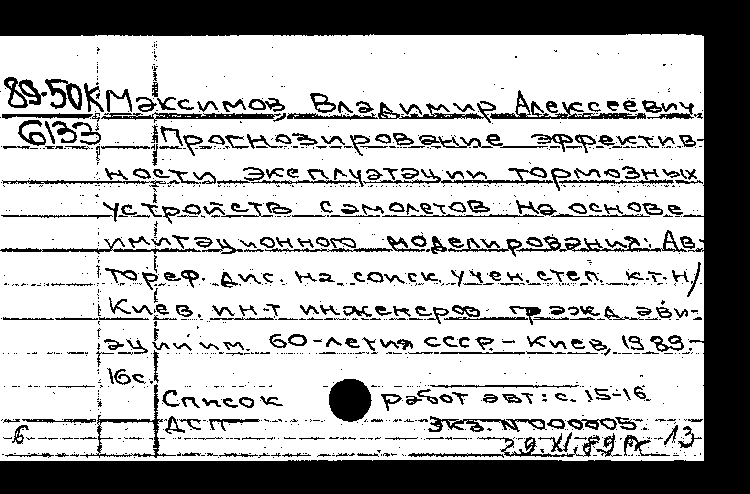 89-50К Максимов, Владимир Алексеевич
6133 Прогнозирование эффектив-
ности эксплуатации тормозных
устройств самолетов на основе
имитационного моделирования: Ав-
тореф. дис. на соиск. учен. степ. к.т.н/
Киев. ин-т инженеров гражд. ави-
ации им. 60-летия СССР. - Киев, 1989.-
16с.
Список работ авт: с. 15-16.
ДСП Экз. N 000005.
6 29.XI.89 13